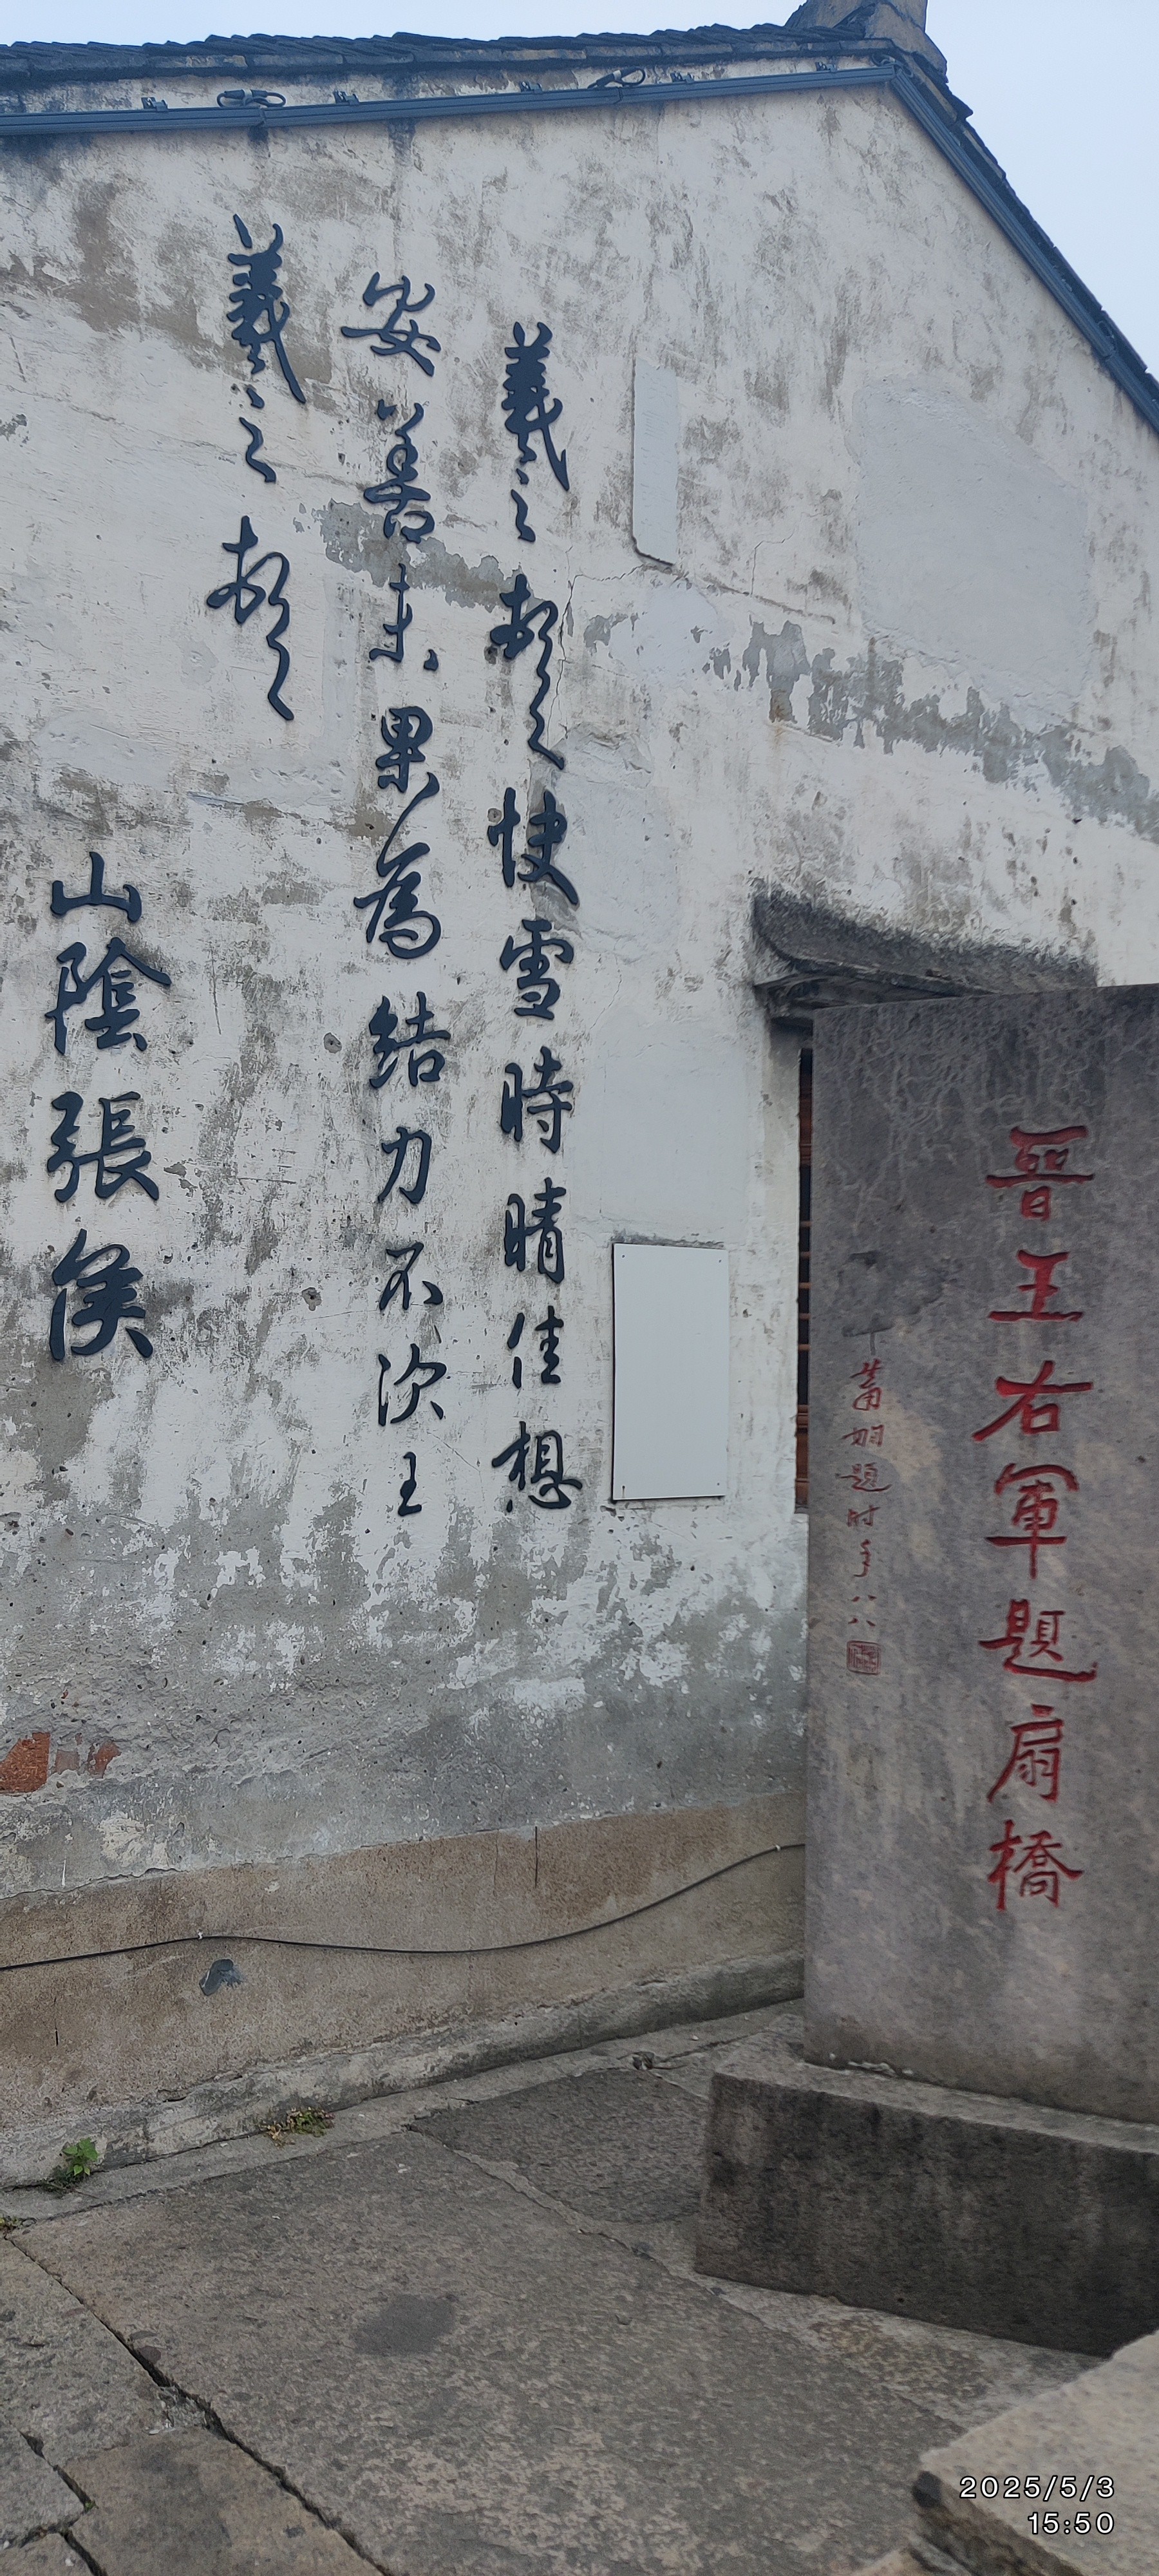 晉王右軍題扇橋
蕭嫻題时年八八
羲之頓首快雪時晴佳想
安善未果為結力不次王
羲之頓首
山陰張侯
2025/5/3
15:50